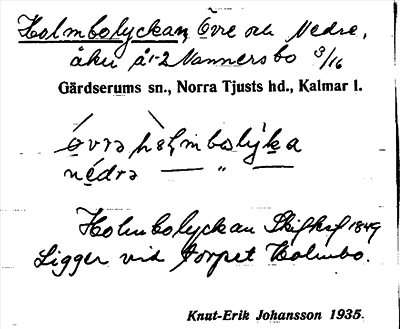 Holmbolyckan, Övre och Nedre,
åker å 1-2 Nannersbo 3/16
Gärdserums sn., Norra Tjusts hd., Kalmar l.
övrə hɵlmbolýka
nédrə — " —
Holmbolyckan Skifteskr 1849
Ligger vid torpet Holmbo.
Knut-Erik Johansson 1935.